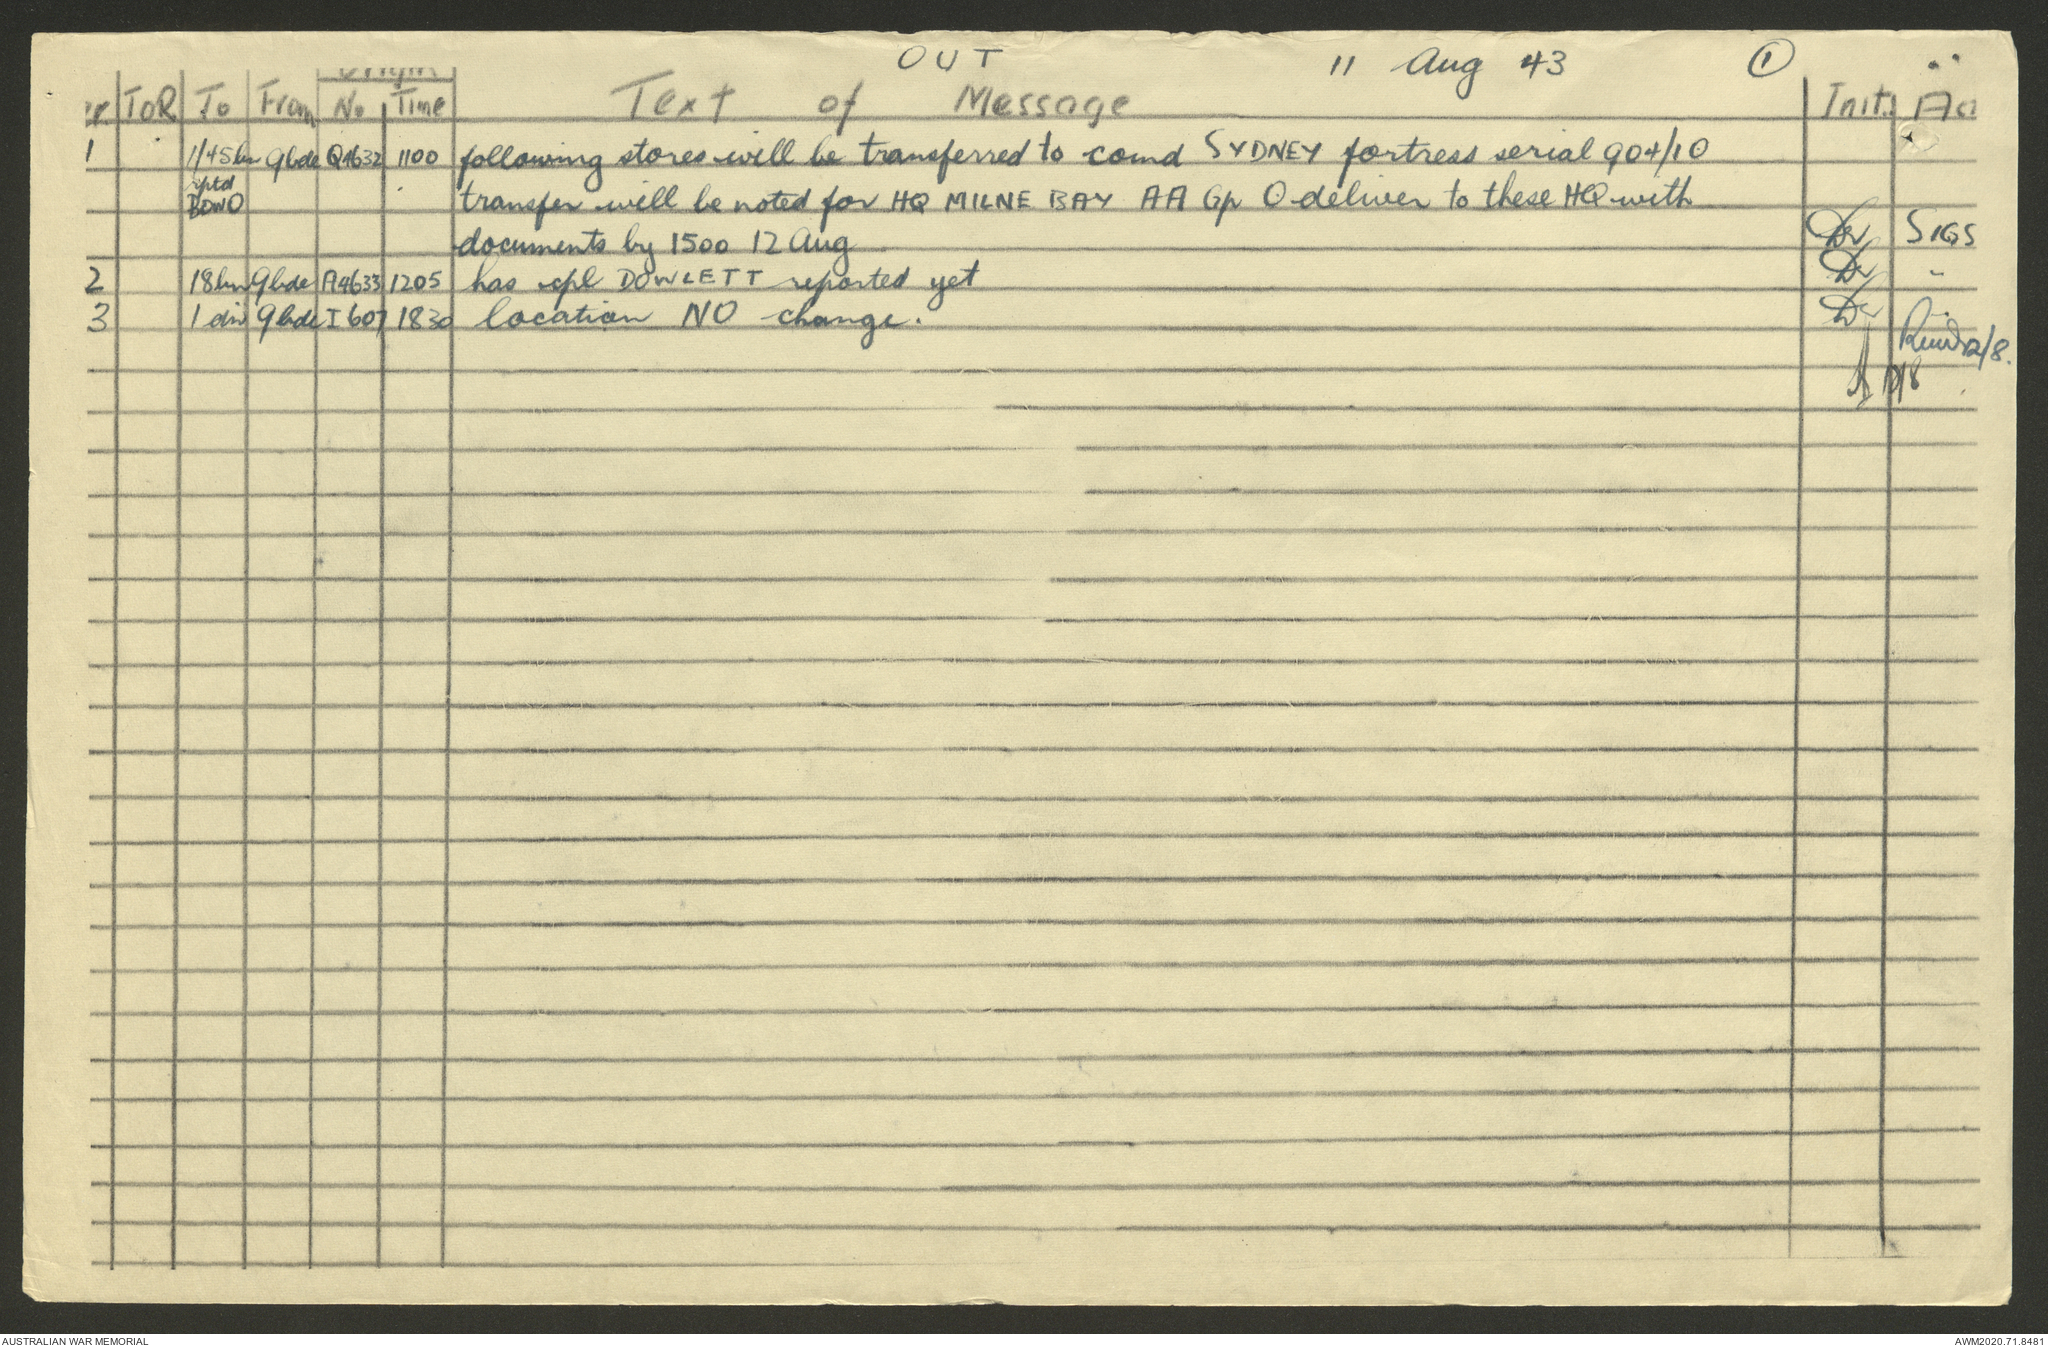 OUT 11 Aug 43 1
Origin
TOR To From No Time Text of Message Init. Ac
1 1/45 bn 9 bde Q4632 1100 following stores will be transferred to comd SYDNEY fortress serial 904/10
rptd
BOWO transfer will be noted for HQ MILNE BAY AA Gp O deliver to these HQ with
documents by 1500 12 Aug SIGS
2 18 bn 9 bde A4633 1205 has cpl DOWLETT reported yet "
3 1 div 9 bde I 607 1830 location NO change. "
12/8.
12/8
AUSTRALIAN WAR MEMORIAL AWM2020.71.8481